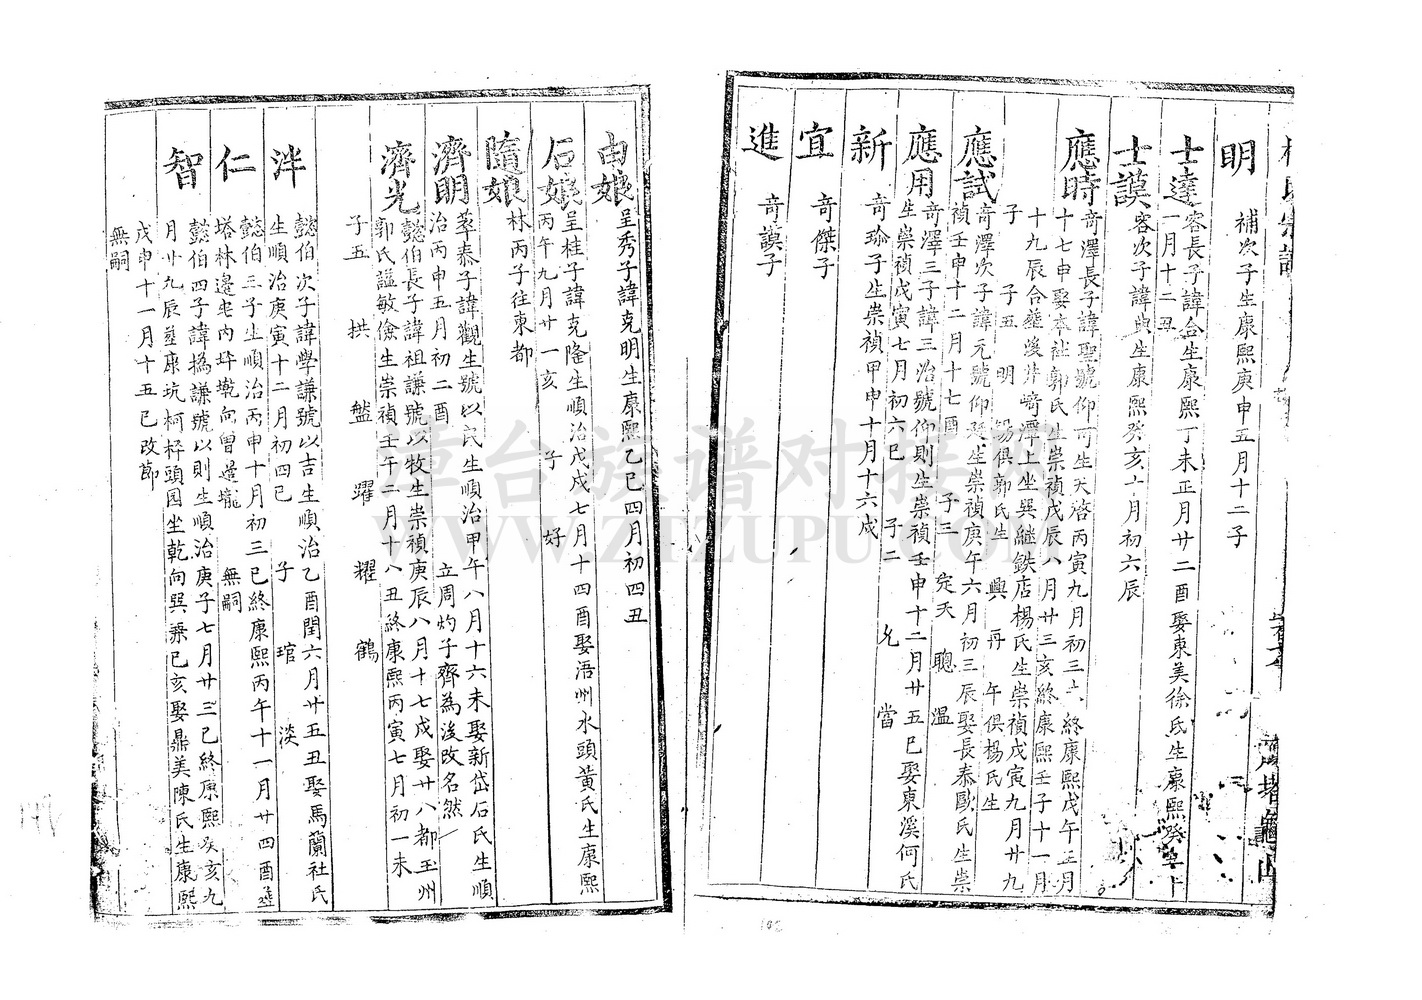 明
補次子生康熙庚申五月十二子
士達
容長子諱合生康熙丁未正月廿二酉娶東美徐氏生康熙癸
一月十二丑
士謨
容次子諱典生康熙癸亥十月初六辰
應時
奇澤長子諱聖號仰可生天啓丙寅九月初三六終康熙戊午正月
十七申娶本社郭氏生崇禎戊辰八月廿三亥終康熙壬子十一月
十九辰合葬後井崎潭上坐巽継鉄店楊氏生崇禎戊寅九月廿九
子 子五 明 錫俱郭氏生 興 再 午俱楊氏生
應試
奇澤次子諱元號仰延生崇禎庚午六月初三辰娶長泰歐氏生崇
禎壬申十二月十七酉 子三 定天 聰 温
應用
奇澤三子諱三治號仰則生崇禎壬申十二月廿五巳娶東溪何氏
生崇禎戊寅七月初六巳 子二 允 當
新
奇珍子生崇禎甲申十月十六戌
宜
奇傑子
進
奇謨子
由娘
呈秀子諱克明生康熙乙巳四月初四丑
后娘
呈桂子諱克隆生順治戊戌七月十四酉娶浯州水頭黃氏生康熙
丙午九月廿一亥 子 好
隨娘
林丙子往東都
濟明
萃泰子諱觀生號以民生順治甲午八月十六未娶新岱石氏生順
治丙申五月初二酉 立周灼子齊為後改名然
濟光
懿伯長子諱祖謙號以牧生崇禎庚辰八月十七戌娶廿八都玉州
郭氏謚敏儉生崇禎壬午二月十八丑終康熙丙寅七月初一未
子五 拱 盤 躍 耀 鶴
泮
懿伯次子諱學謙號以吉生順治乙酉閏六月廿五丑娶馬蘭社氏
生順治庚寅十二月初四巳 子 琯 淡
仁
懿伯三子生順治丙申十月初三巳終康熙丙午十一月廿四酉葬
塔林邊宅内坪墘向曾邊壠 無嗣
智
懿伯四子諱撝謙號以則生順治庚子七月廿三巳終康熙癸亥九
月廿九辰葬康坑柯梓頭园坐乾向巽兼巳亥娶鼎美陳氏生康熙
戊申十一月十五巳改節
無嗣
漳台族谱对接网
WWW.ZTZUPU.COM